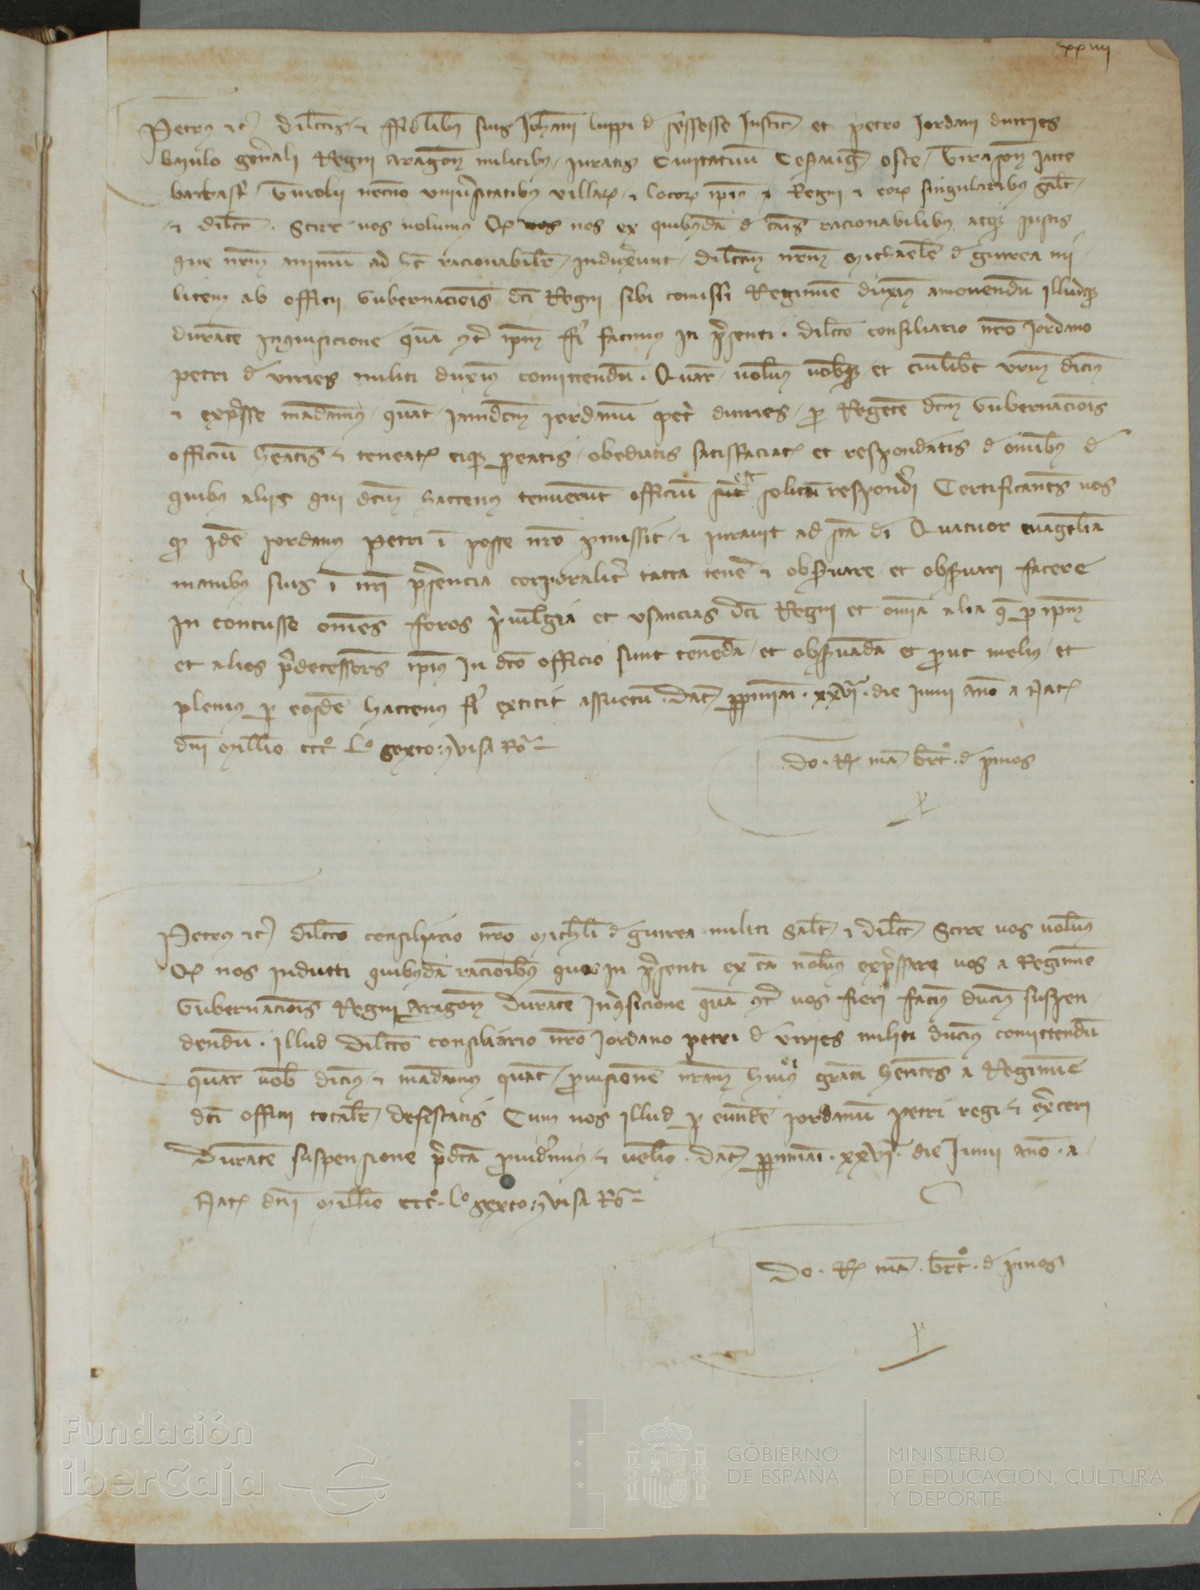 xxiiii
Petrus etc dilectis et fidelibus suis Johanni luppi de sessesse Justicie et petro Jordani durries
baiulo generali Regni Aragonum militibus juratis Civitatum Cesaraug osce Tirasone Jacce
barbastri Turolii necnon universitatibus villarum et locorum ipsius Regni et eorum singularibus salutem
et dilectionem. Scire vos volumus Quod nos ex quibusdam de causis racionabilibus atque justis
que nostrum animum ad hec racionabiliter induxerunt dilectum nostrum Michaelem de gurrea mi
litem ab officii Gubernacionis dicti Regni sibi comissi Regimine duximus amovendum illudque
durante Inquisicione quam contra ipsum fieri facimus in presenti. dilecto consiliario nostro Jordano
petri de urries militi duximus comittendum. Quare volumus vobisque et cuilibet vestrum dicimus
et expresse mandamus quatenus jamdictum Jordanum petri durries pro Regente dictum Gubernacionis
officium habeatis et teneatis eique pareatis obediatis satisfaciatis et respondeatis de omnibus de
quibus aliis qui dictum hactenus tenuerunt officium solitum responderi Certificantes vos
quod idem Jordanus petri in posse nostro promissit et juravit ad sancta dei Quatuor evangelia
manibus suis in nostri presencia corporaliter tacta tenere et observare et observari facere
inconcusse omnes foros privilegia et usancias dicti Regni et omnia alia que per ipsum
et alios predecessores ipsius in dicto officio sunt tenenda et observanda et prout melius et
plenius per eosdem hactenus fieri extitit assuetum. Datum perpiniani. xxvi. die Junii anno a Nat
domini Millesimo ccc° L° sexto. visa Ro
Do. R mand bertrando. de pinos
Petrus etc dilecto consiliario nostro Michaeli de gurrea militi Salutem et dilectionem Scire vos volumus
Quod nos inducti quibusdam racionibus quas in presenti ex causa nolumus expressare vos a Regimine
Gubernacionis Regni Aragonum durante Inquisicione quam contra vos fieri facimus duximus suspen
dendum. illud dilecto consiliario nostro Jordano petri de urries militi duximus comittendum
quare vobis dicimus et mandamus quatenus provisionem nostram huiusmodi gratam habentes a Regimine
dicti officii totaliter desistatis Cum nos illud per eundem Jordanum petri regi et exerceri
durante suspensione predicta providerimus et velimus. Datum perpiniani. xxvi. die Junii anno. a
Nat domini Millesimo ccc°. L° sexto. visa Ro
Do. R mand. bertrando. de pinos
Fundación
iberCaja
GOBIERNO
DE ESPAÑA
MINISTERIO
DE EDUCACIÓN, CULTURA
Y DEPORTE